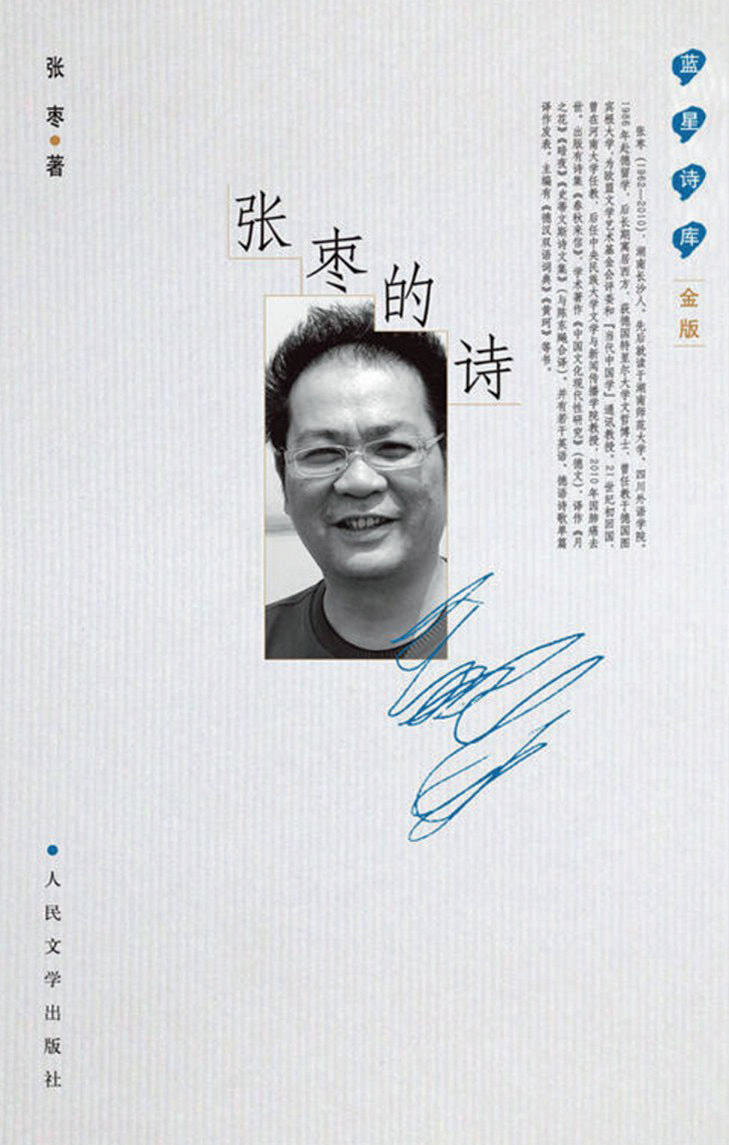 蓝星诗库
金版
张枣(1962—2010),湖南长沙人,先后就读于湖南师范大学、四川外语学院。
1986年赴德留学,后长期寓居西方,获德国特里尔大学文哲博士,曾任教于德国图
宾根大学,为欧盟文学艺术基金会评委和『当代中国学』通讯教授。21世纪初回国,
曾在河南大学任教,后任中央民族大学文学与新闻传播学院教授,2010年因肺癌去
世。出版有诗集《春秋来信》,学术著作《中国文化现代性研究》(德文),译作《月
之花》《暗夜》《史蒂文斯诗文集》(与陈东飚合译),并有若干英语、德语诗歌单篇
译作发表。主编有《德汉双语词典》《黄珂》等书。
张枣的诗
张枣•著
人民文学出版社